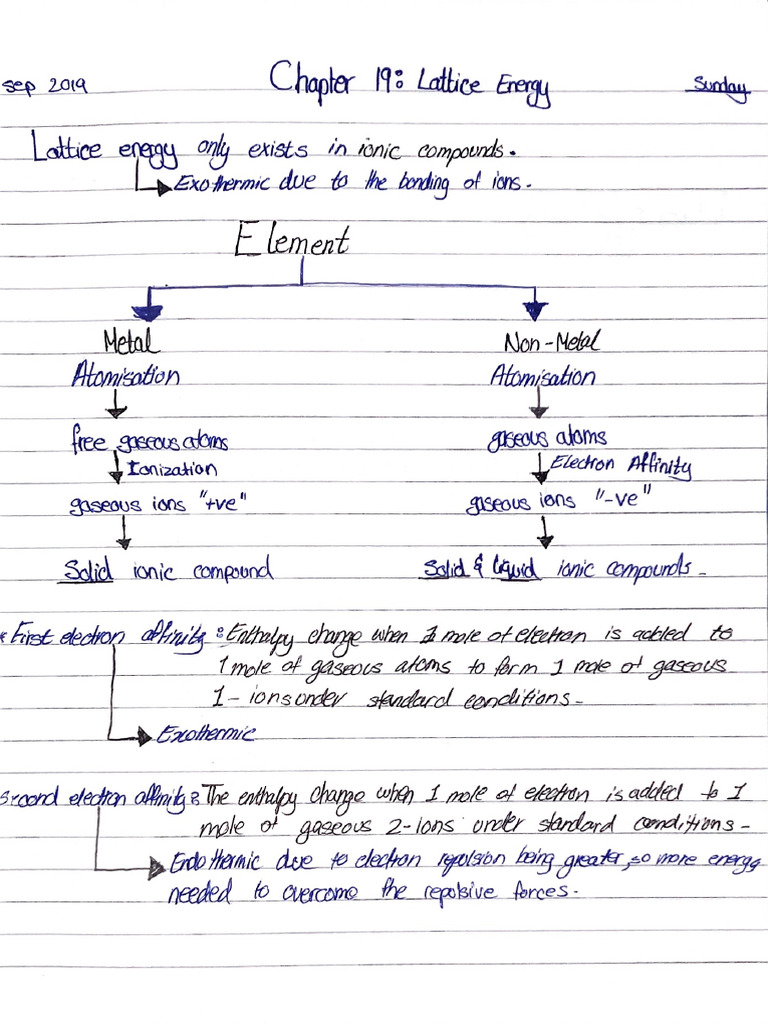 sep 2019 Chapter 19: Lattice Energy Sunday
Lattice energy only exists in ionic compounds.
Exothermic due to the bonding of ions.
Element
Metal Non-Metal
Atomisation Atomisation
free gaseous atoms gaseous atoms
Ionization Electron Affinity
gaseous ions "+ve" gaseous ions "-ve"
Solid ionic compound Solid & liquid ionic compounds-
First electron affinity: Enthalpy change when 1 mole of electron is added to
1 mole of gaseous atoms to form 1 mole of gaseous
1- ions under standard conditions-
Exothermic
Second electron affinity: The enthalpy change when 1 mole of electron is added to 1
mole of gaseous 2-ions under standard conditions-
Endothermic due to electron repulsion being greater, so more energy
needed to overcome the repolsive forces.